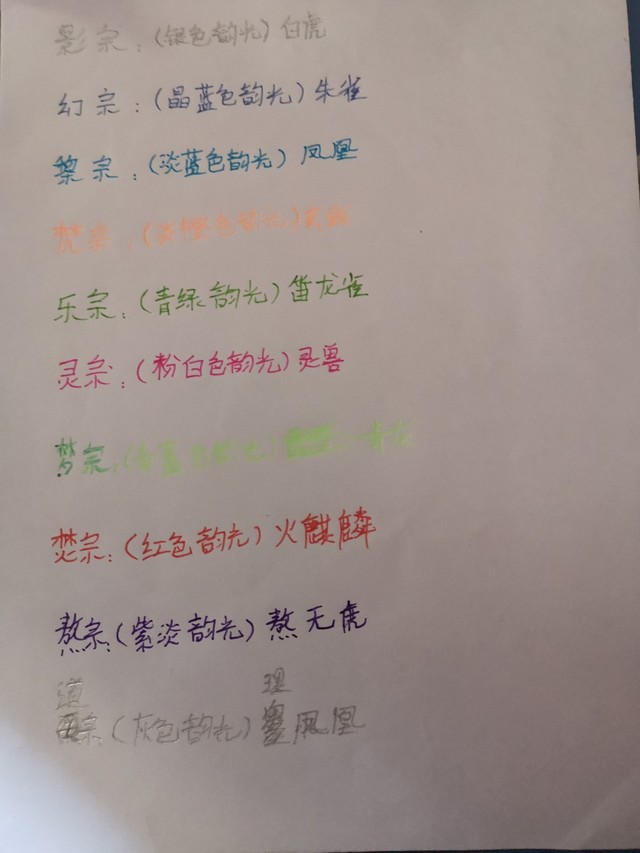 影宗：(银色韵光) 白虎
幻宗：(晶蓝色韵光) 朱雀
黎宗：(淡蓝色韵光) 凤凰
梵宗：(橙色韵光)
乐宗：(青绿韵光) 笛龙雀
灵宗：(粉白色韵光) 灵兽
梦宗：(青蓝色韵光) 青龙
焚宗：(红色韵光) 火麒麟
熬宗：(紫淡韵光) 熬无虎
道 理
宗 (灰色韵光) 凤凰